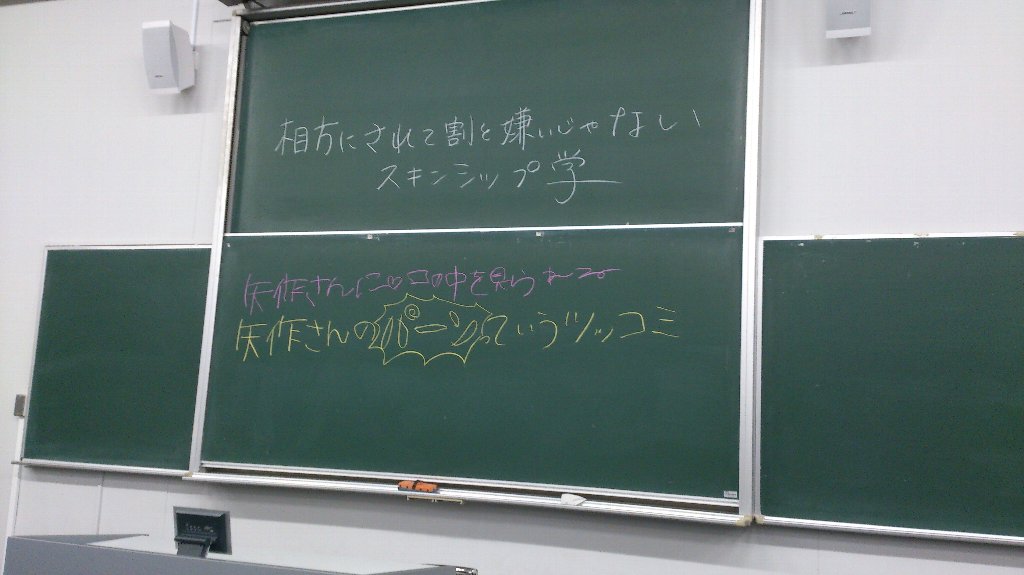 相方にされて割と嫌いじゃない
スキンシップ学
矢作さんにッコの中を見られる
矢作さんのパーンっていうツッコミ